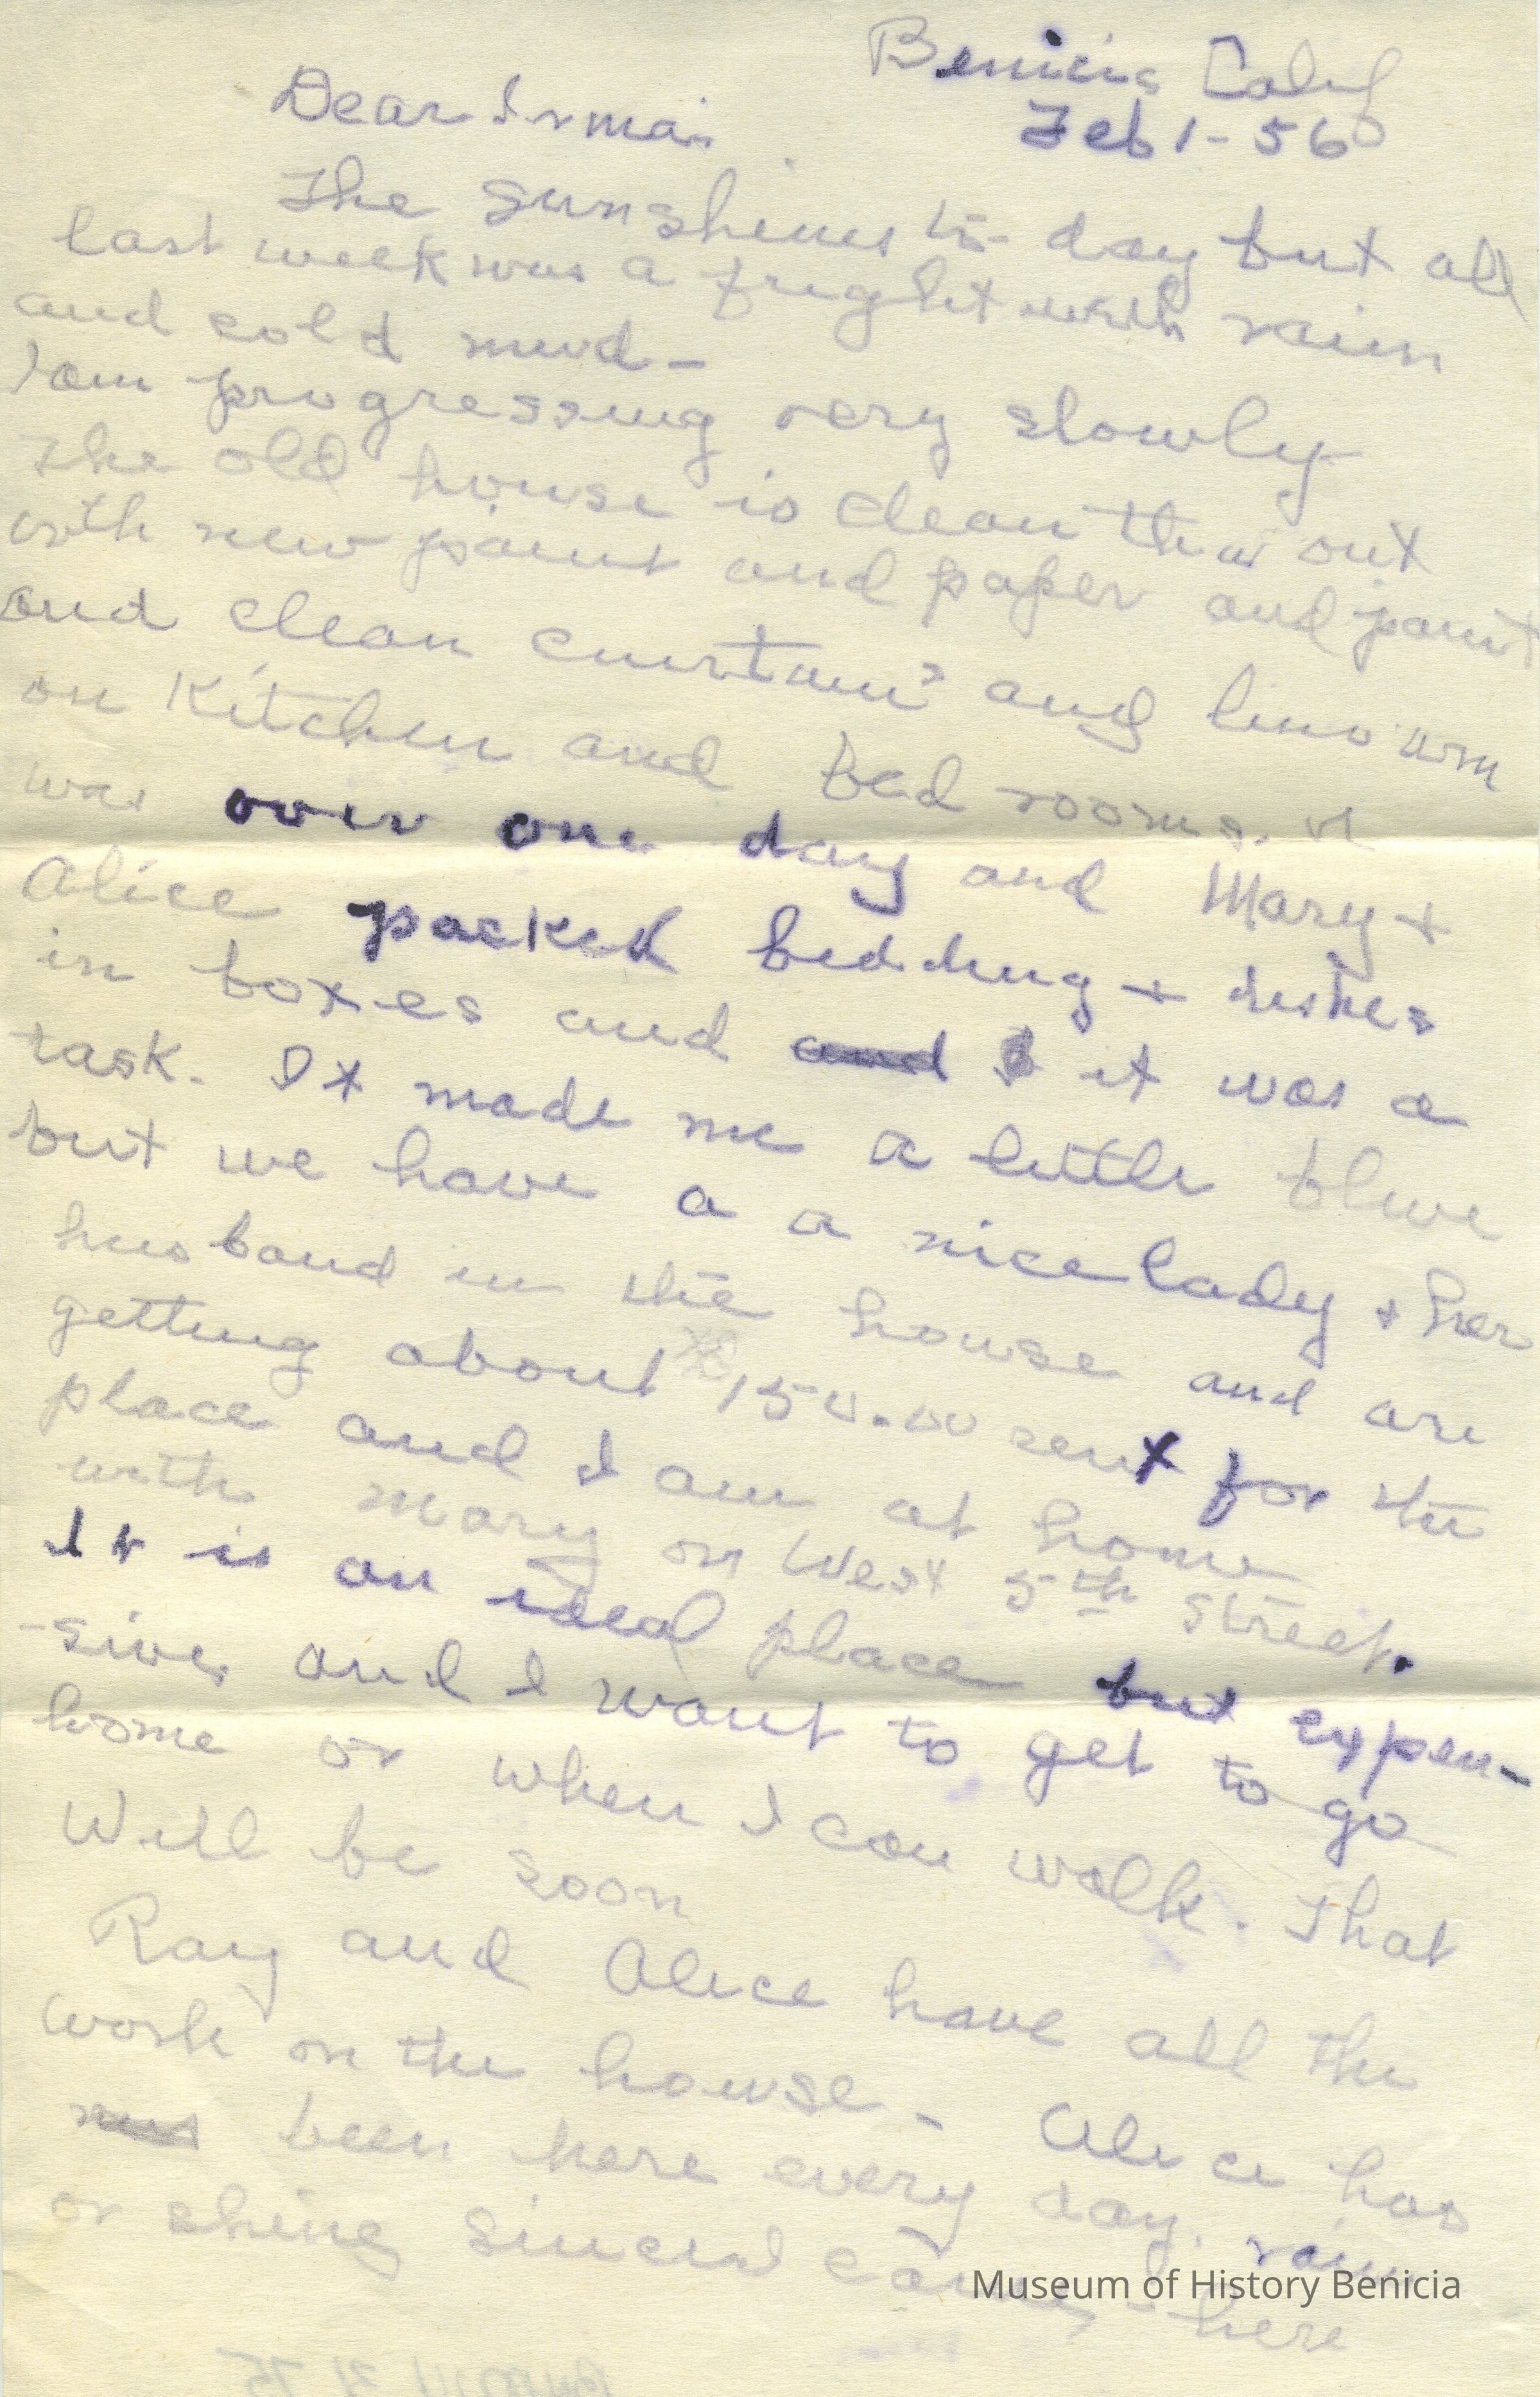 Benicia Calif
Feb 1-56
Dear Irma.
The sunshines to-day but all
last week was a fright with rain
and cold mud-
I am progressing very slowly
The old house is clean thru out
with new paint and paper and paint
and clean curtains and
on Kitchen and bed rooms. I
was over one day and Mary +
Alice packed bedding + dishes
in boxes and and it was a
task. It made me a little blue
but we have a a nice lady + her
husband in the house and are
getting about 150.00 rent for the
place and I am at home
with Mary on West 5th Street.
It is an ideal place but expen-
-sive, and I want to get to go
home or when I can walk. That
Will be soon
Ray and Alice have all the
work on the house - Alice has
been here every day. rain
or shine since I came here
Museum of History Benicia